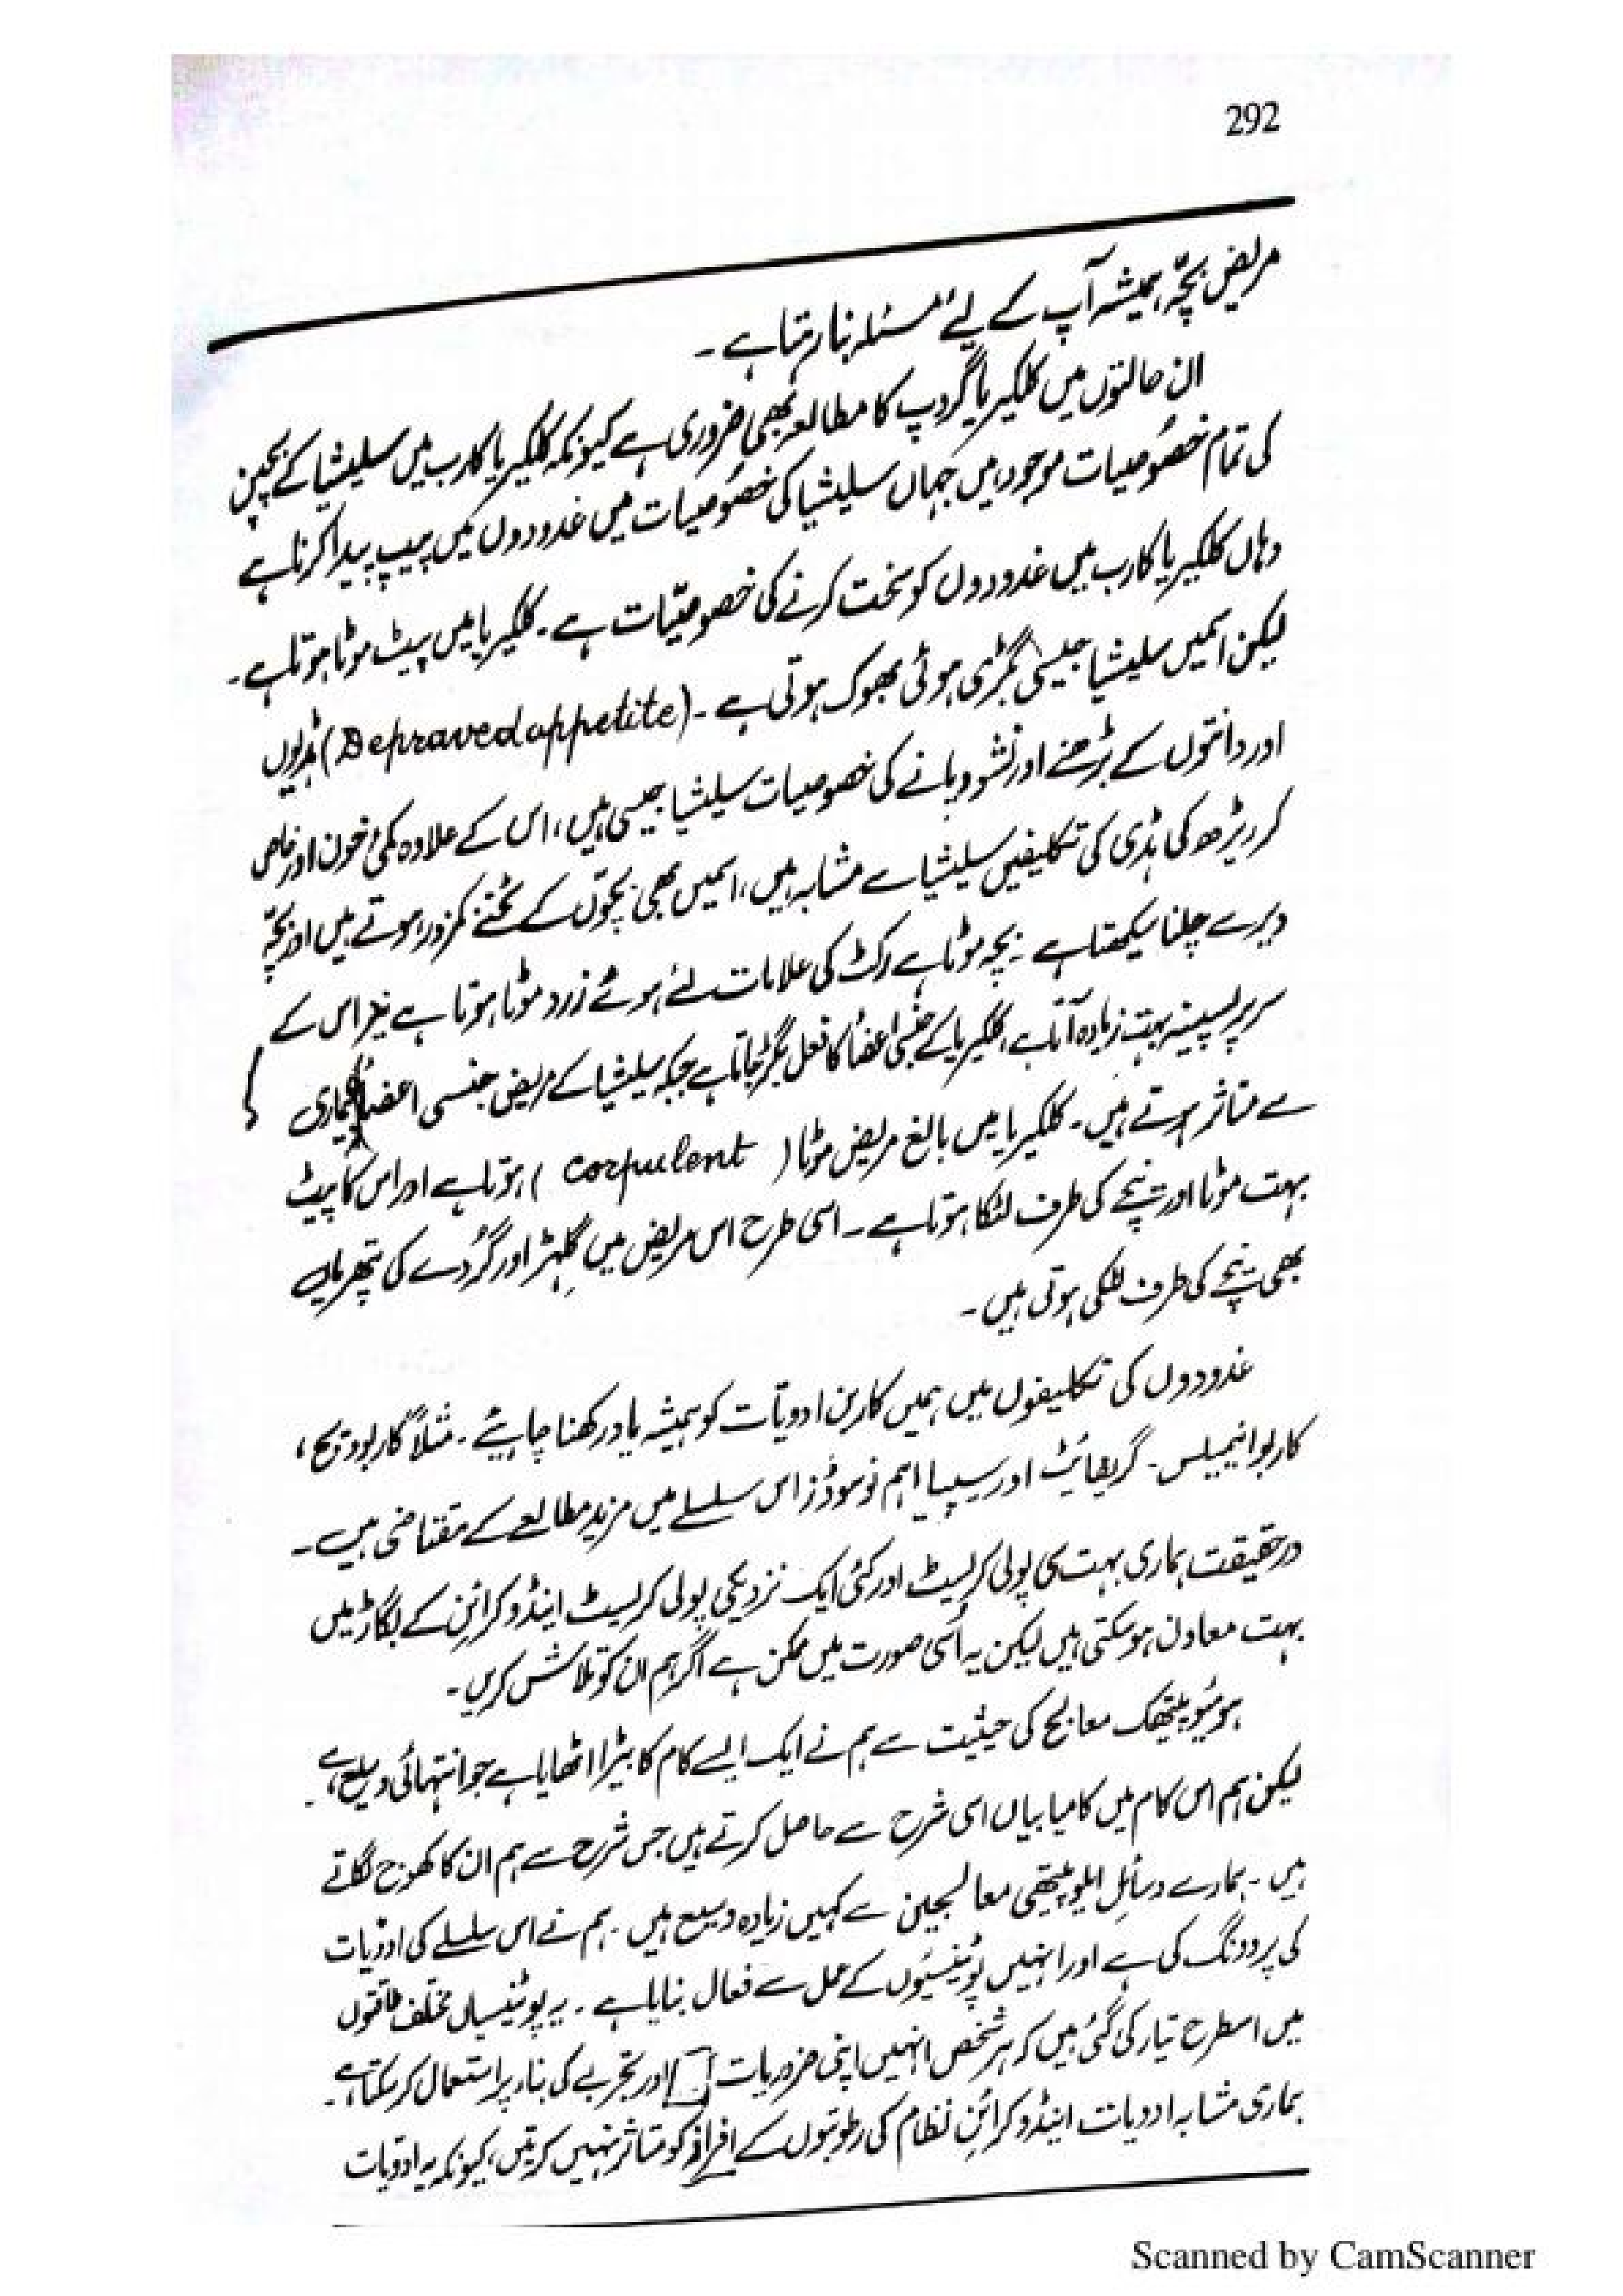 292
مریض بچّہ ہمیشہ آپ کے لئے مسئلہ بنا رہتا ہے۔
ان حالتوں میں کلکیریا گروپ کا مطالعہ بھی ضروری ہے کیونکہ کلکیریا کارب میں سلیشیا کے بچپن
کی تمام خصُوصیات موجود ہیں جہاں سلیشیا کی خصُوصیات میں غدودوں میں پیپ پیدا کرنا ہے
وہاں کلکیریا کارب میں غدودوں کو سخت کرنے کی خصوصیّات ہے۔ کلکیریا میں پیٹ موٹا ہوتا ہے۔
لیکن اسمیں سلیشیا جیسی بگڑی ہوئی بھوک ہوتی ہے۔ (Depraved appetite) ہڈیوں
اور دانتوں کے بڑھنے اور نشو و پانے کی خصوصیات سلیشیا جیسی ہیں، اس کے علاوہ کمئ خون اور خاص
کر ریڑھ کی ہڈی کی تکلیفیں سلیشیا سے مشابہ ہیں، اسمیں بھی بچّوں کے ٹخنے کمزور ہوتے ہیں اور بچّہ
دیر سے چلنا سیکھتا ہے۔ بچہ موٹا ہے رکٹ کی علامات لئے ہوئے زرد موٹا ہوتا ہے نیز اس کے
سر پر پسینہ بہت زیادہ آتا ہے، کلکیریا کے جنسی اعضأ کا فعل بگڑ جاتا ہے جبکہ سلیشیا کے مریض جنسی اعضأ بیماری
سے متاثر ہوتے ہیں۔ کلکیریا میں بالغ مریض موٹا (corpulent) ہوتا ہے اور اس کا پیٹ
بہت موٹا اور نیچے کی طرف لٹکا ہوتا ہے۔ اسی طرح اس مریض میں گلہڑ اور گُردے کی پتھریاں
بھی نیچے کی طرف لٹکی ہوتی ہیں۔
غدودوں کی تکلیفوں میں ہمیں کاربن ادویّات کو ہمیشہ یاد رکھنا چاہیئے۔ مثلاً کاربوویج،
کاربوانیمیلس۔ گریفائیٹ اور سیپیا اہم نوسوڈز اس سلسلے میں مزید مطالعے کے متقاضی ہیں۔
درحقیقت ہماری بہت سی پولی کرلیسٹ اور کئی ایک نزدیکی پولی کرلیسٹ اینڈوکرائن کے بگاڑ میں
بہت معاون ہو سکتی ہیں لیکن یہ اُسی صورت میں ممکن ہے اگر ہم ان کو تلاش کریں۔
ہومیوپیتھک معالج کی حیثیت سے ہم نے ایک ایسے کام کا بیڑا اٹھایا ہے جو انتہائی وسیع ہے۔
لیکن ہم اس کام میں کامیابیاں اسی شرح سے حاصل کرتے ہیں جس شرح سے ہم ان کا کھوج لگاتے
ہیں۔ ہمارے وسائل ایلوپیتھی معالجین سے کہیں زیادہ وسیع ہیں۔ ہم نے اس سلسلے کی ادویات
کی پروونگ کی ہے اور انہیں پوٹینسیوں کے عمل سے فعال بنایا ہے۔ یہ پوٹینسیاں مختلف طاقتوں
میں اسطرح تیار کی گئی ہیں کہ ہر شخص انہیں اپنی ضروریات اور تجربے کی بناء پر استعمال کر سکتا ہے۔
ہماری مشابہ ادویات اینڈوکرائن نظام کی رطوبتوں کے افراز کو متاثر نہیں کرتیں، کیونکہ یہ ادویّات
Scanned by CamScanner